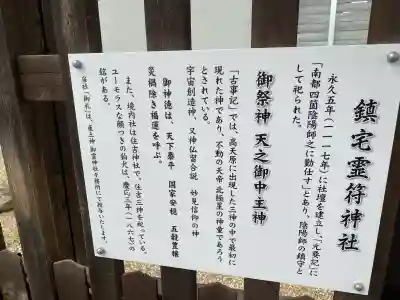 鎮宅霊符神社
永久五年(一一一七年)に社壇を建立し、「元要記」に
「南都四箇陰陽師之に勤仕す」とあり、陰陽師の鎮守と
して祀られた。
御祭神 天之御中主神
「古事記」では、高天原に出現した三神の中で最初に
現れた神であり、不動の天帝 北極星の神霊であろう
とされている。
宇宙創造神、又神仏習合説 妙見信仰の神
御神徳は、天下泰平 国家安穏 五穀豊穣
災禍除き福運を呼ぶ。
また、境内社は住吉神社で、住吉三神を祀っている。
ユーモラスな顔つきの狛犬は、慶応三年(一八六七)の
銘がある。
当社「御札」は、庚主神 御霊神社 社務所にて授与いたします。